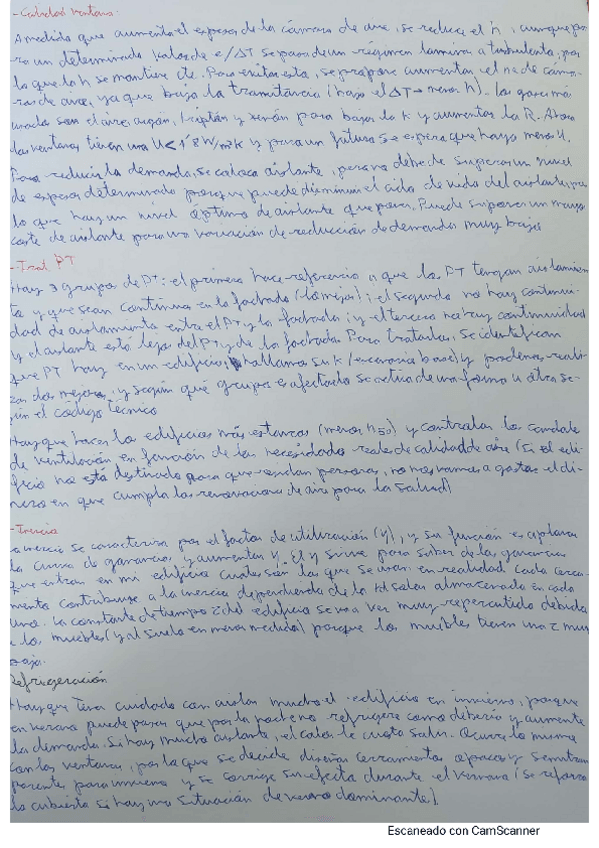 - Calidad ventana.
A medida que aumenta el espesor de la cámara de aire, se reduce el h, aunque pa
ra un determinado valor de e/ΔT se pasa de un régimen laminar a turbulento, por
lo que la h se mantiene cte. Para evitar esto, se propone aumentar el nº de cáma
ras de aire, ya que baja la transmitancia (baja el ΔT → menor h). Los gases más
usados son el aire, argón, kriptón y xenón para bajar la k y aumentar la R. Ahora
las ventanas tienen una U< 1'8 W/m²K y para un futuro se espera que haya menor U.
Para reducir la demanda, se coloca aislante, pero no debe de superar un nivel
de espesor determinado porque puede disminuir el ciclo de vida del aislante, por
lo que hay un nivel óptimo de aislante que poner. Puede suponer un mayor
coste de aislante para una variación de reducción de demanda muy baja
- Trat PT
Hay 3 grupos de PT: el primero hace referencia a que los PT tengan aislamien
to y que sean continua en la fachada (la mejor); el segundo no hay continui-
dad de aislamiento entre el PT y la fachada; y el tercero no hay continuidad
y el aislante está lejos del PT y de la fachada. Para tratarlos, se identifican
que PT hay en un edificio, hallamos su k (escenario base) y podemos reali-
zar dos mejoras, y según qué grupo es afectado se actúa de una forma u otra se-
gún el código técnico
Hay que hacer los edificios más estancos (menor n50) y controlar los caudales
de ventilación en función de las necesidades reales de calidad de aire (Si el edi-
ficio no está destinado para que residan personas, no nos vamos a gastar el di-
nero en que cumpla las renovaciones de aire para la salud)
- Inercia
La inercia se caracteriza por el factor de utilización (η), y su función es aplanar
la curva de ganancias y aumentar η. El η sirve para saber de las ganancias
que entran en mi edificio cuales son las que se usan en realidad. Cada cerra-
miento contribuye a la inercia dependiendo de la almacenado en cada
uno. La constante de tiempo τ del edificio se va a ver muy repercutida debido
a los muebles (y al suelo en menor medida) porque los muebles tienen una τ muy
baja.
Refrigeración
Hay que tener cuidado con aislar mucho el edificio en invierno, porque
en verano puede pasar que por la noche no refrigere como debería y aumente
la demanda. Si hay mucho aislante, el calor le cuesta salir. Ocurre lo mismo
con las ventanas, por lo que se decide diseñar cerramientos opacos y semitrans
parentes para invierno y se corrige su efecto durante el verano (se refuerza
la cubierta si hay una situación de verano dominante).
Escaneado con CamScanner